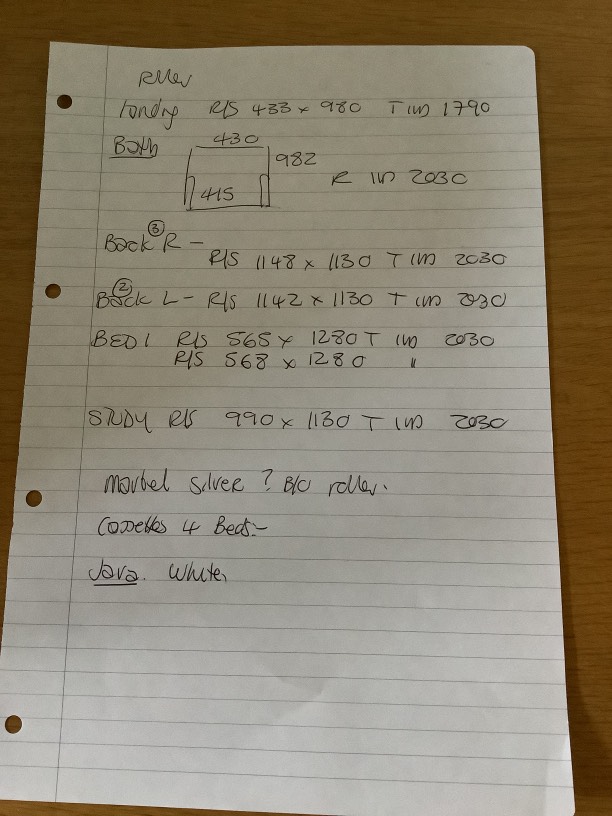 Landry R/S 433 x 980 T IN 1790
Bath 430
982
415 R IN 2030
Back ③ R -
R/S 1148 x 1130 T IN 2030
Back ② L - R/S 1142 x 1130 T IN 2030
BED 1 R/S 565 x 1280 T IN 2030
R/S 568 x 1280 "
STUDY R/S 990 x 1130 T IN 2030
Marbel Silver ? B/O roller.
Cassettes 4 Beds -
Java. White